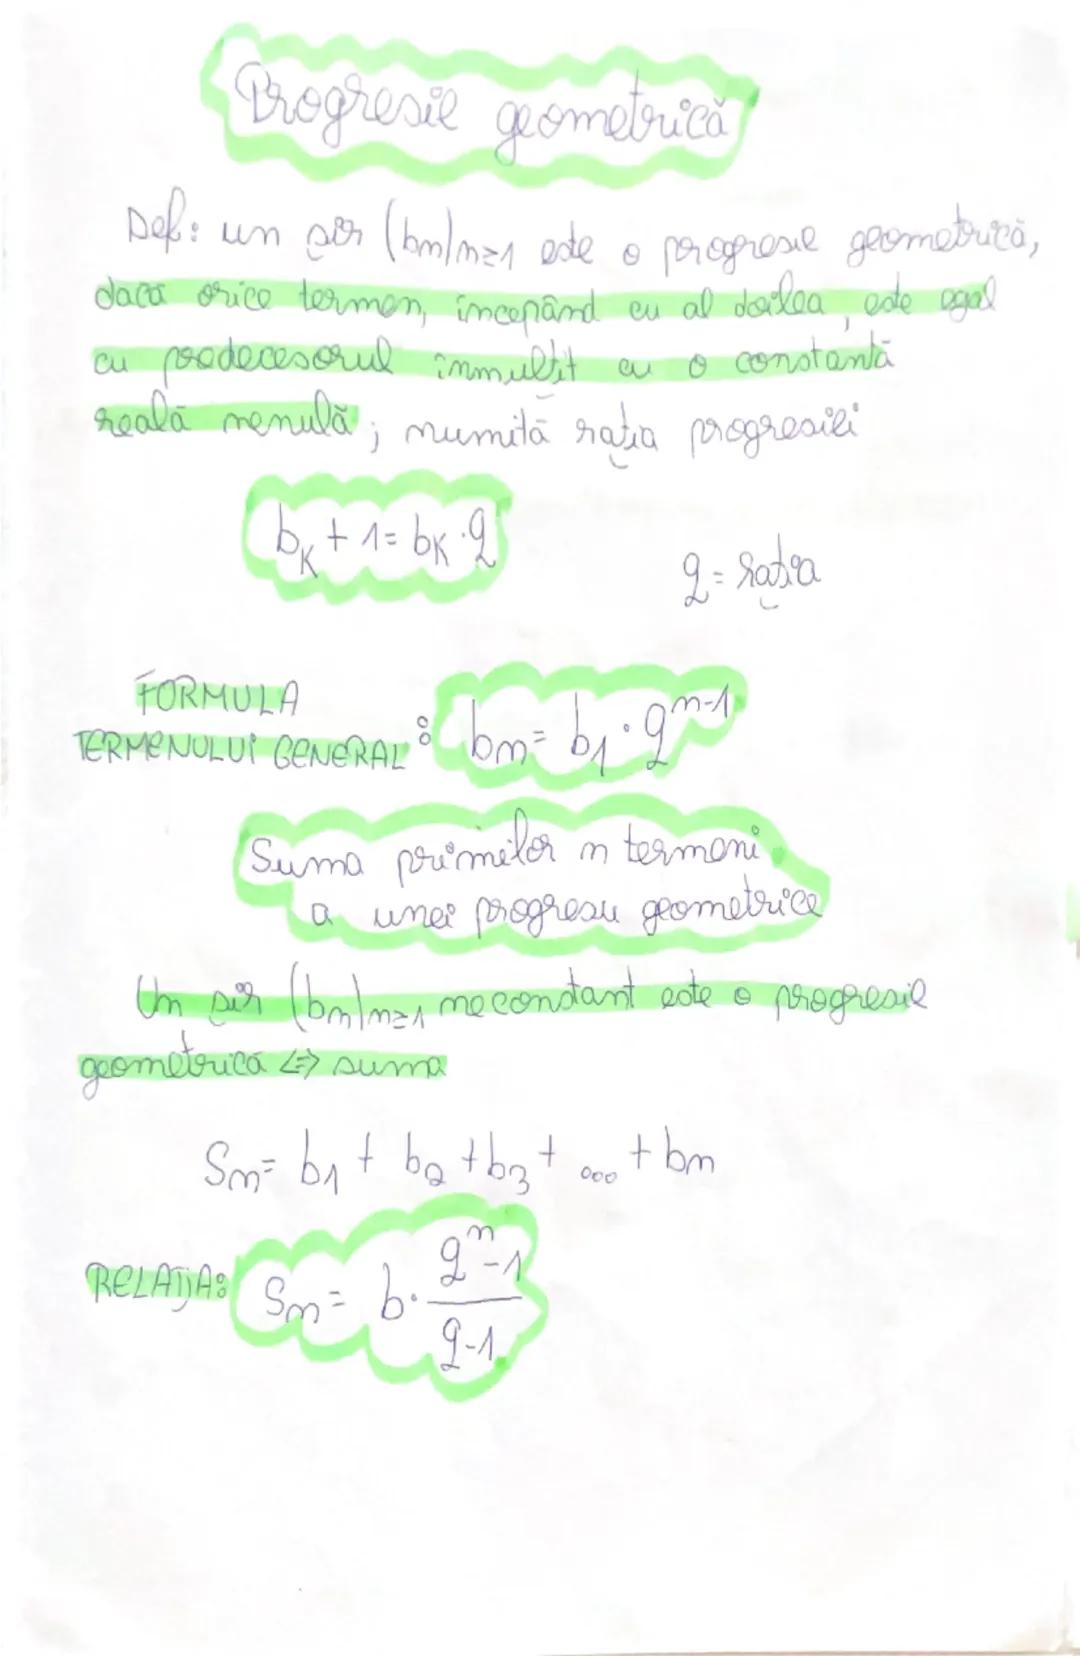 Progresie geometrică
Def: un șir (bn)n≥1 este o progresie geometrică,
dacă orice termen, începând cu al doilea, este egal
cu predecesorul înmulțit cu o constantă
reală nenulă; numită rația progresiei
b_K + 1 = b_K · q
q = rația
FORMULA
TERMENULUI GENERAL : bn = b1 · q^{n-1}
Suma primilor n termeni
a unei progresii geometrice
Un șir (bn)n≥1 neconstant este o progresie
geometrică <=> suma
Sn = b1 + b2 + b3 + ... + bn
RELAȚIA: Sn = b · \frac{q^n - 1}{q - 1}